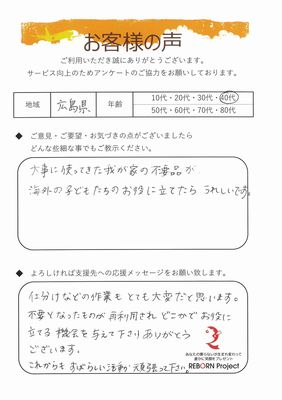 お客様の声
ご利用いただき誠にありがとうございます。
サービス向上のためアンケートのご協力をお願いしております。
地域 広島県 年齢 10代・20代・30代・40代
50代・60代・70代・80代
◆ ご意見・ご要望・お気づきの点がございましたら
どんな些細な事でもご教示ください。
大事に使ってきた我が家の不要品が
海外の子どもたちのお役に立てたら うれしいです。
◆ よろしければ支援先への応援メッセージをお願い致します。
仕分けなどの作業も とても大変だと思います。
不要となったものが再利用され どこかでお役に
立てる 機会を与えて下さりありがとう
ございます。
これからも すばらしい活動 頑張って下さい。
あなたの要らないが生まれ変わって
遠かに笑顔をプレゼント
REBORN Project